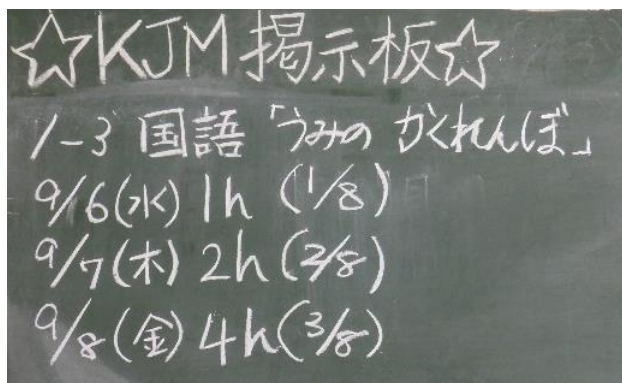 ☆KJM掲示板☆
1-3 国語「うみの かくれんぼ」
9/6(水) 1h (1/8)
9/7(木) 2h (2/8)
9/8(金) 4h (3/8)